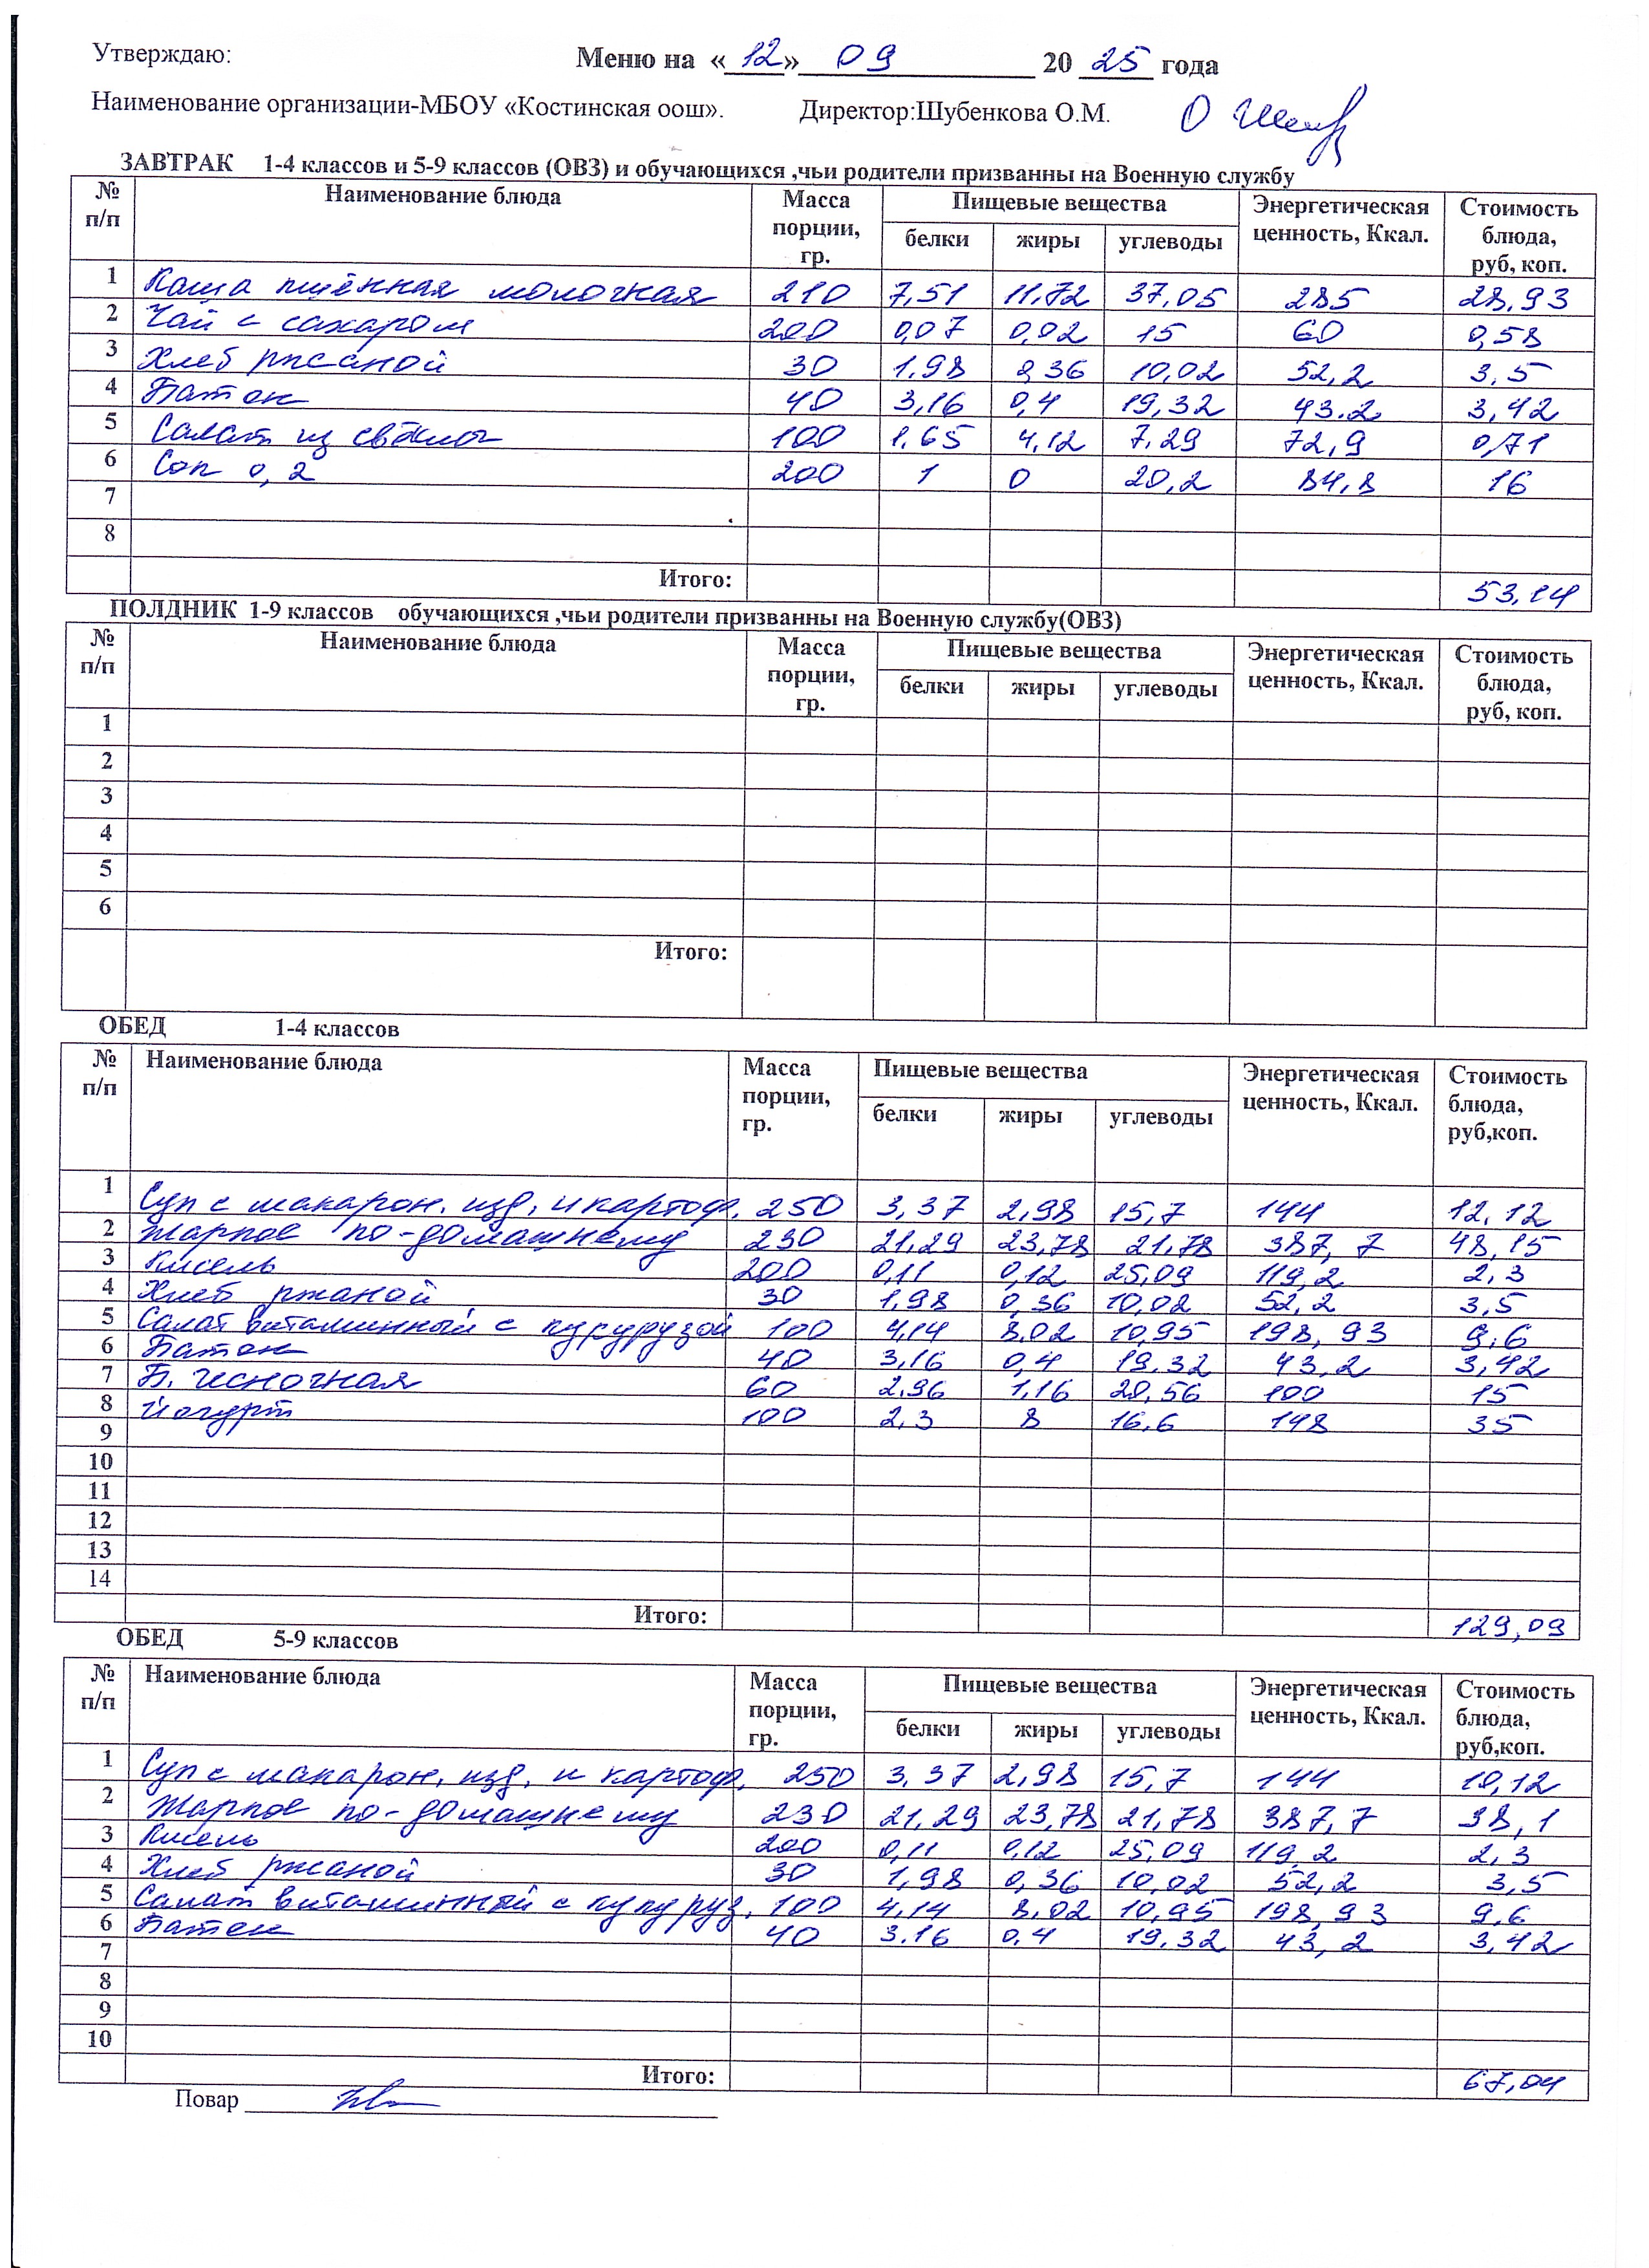 Утверждаю: Меню на «12» 09 20 25 года
Наименование организации-МБОУ «Костинская оош». Директор:Шубенкова О.М.
ЗАВТРАК 1-4 классов и 5-9 классов (ОВЗ) и обучающихся ,чьи родители призванны на Военную службу
№ п/п Наименование блюда Масса порции, гр. Пищевые вещества Энергетическая ценность, Ккал. Стоимость блюда, руб, коп.
белки жиры углеводы
1 Каша пшённая молочная 210 7,51 11,72 37,05 285 28,93
2 Чай с сахаром 200 0,07 0,02 15 60 0,58
3 Хлеб ржаной 30 1,98 0,36 10,02 52,2 3,5
4 Батон 40 3,16 0,4 19,32 43.2 3,42
5 Салат из свёклы 100 1,65 4,12 7,29 72,9 0,71
6 Сок 0,2 200 1 0 20,2 84,8 16
7
8
Итого: 53,14
ПОЛДНИК 1-9 классов обучающихся ,чьи родители призванны на Военную службу(ОВЗ)
№ п/п Наименование блюда Масса порции, гр. Пищевые вещества Энергетическая ценность, Ккал. Стоимость блюда, руб, коп.
белки жиры углеводы
1
2
3
4
5
6
Итого:
ОБЕД 1-4 классов
№ п/п Наименование блюда Масса порции, гр. Пищевые вещества Энергетическая ценность, Ккал. Стоимость блюда, руб,коп.
белки жиры углеводы
1 Суп с макарон. изд. и картоф. 250 3,37 2,98 15,7 144 12,12
2 Жаркое по-домашнему 230 21,29 23,78 21,78 387,7 48,15
3 Кисель 200 0,11 0,12 25,09 119,2 2,3
4 Хлеб ржаной 30 1,98 0,36 10,02 52,2 3,5
5 Салат витаминный с кукурузой 100 4,14 8,02 10,95 198,93 9,6
6 Батон 40 3,16 0,4 19,32 43,2 3,42
7 Б. чесночная 60 2,96 1,16 20,56 100 15
8 Йогурт 100 2,3 8 16,6 148 35
9
10
11
12
13
14
Итого: 129,09
ОБЕД 5-9 классов
№ п/п Наименование блюда Масса порции, гр. Пищевые вещества Энергетическая ценность, Ккал. Стоимость блюда, руб,коп.
белки жиры углеводы
1 Суп с макарон. изд. и картоф. 250 3,37 2,98 15,7 144 10,12
2 Жаркое по-домашнему 230 21,29 23,78 21,78 387,7 38,1
3 Кисель 200 0,11 0,12 25,09 119,2 2,3
4 Хлеб ржаной 30 1,98 0,36 10,02 52,2 3,5
5 Салат витаминный с кукуруз. 100 4,14 8,02 10,95 198,93 9,6
6 Батон 40 3,16 0,4 19,32 43,2 3,42
7
8
9
10
Итого: 67,04
Повар